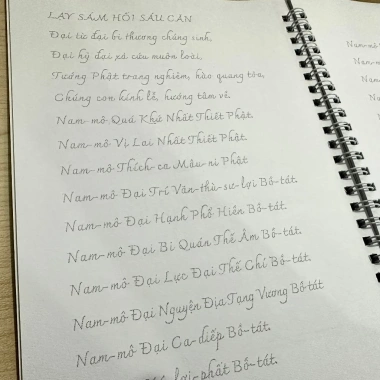 LẠY SÁM HỐI SÁU CĂN
Đại từ đại bi thương chúng sinh,
Đại hỷ đại xả cứu muôn loài,
Tướng Phật trang nghiêm, hào quang tỏa,
Chúng con kính lễ, hướng tâm về.
Nam-mô Quá Khứ Nhất Thiết Phật.
Nam-mô Vị Lai Nhất Thiết Phật.
Nam-mô Thích-ca Mâu-ni Phật
Nam-mô Đại Trí Văn-thù-sư-lợi Bồ-tát.
Nam-mô Đại Hạnh Phổ Hiền Bồ-tát.
Nam-mô Đại Bi Quán Thế Âm Bồ-tát.
Nam-mô Đại Lực Đại Thế Chí Bồ-tát.
Nam-mô Đại Nguyện Địa Tạng Vương Bồ-tát
Nam-mô Đại Ca-diếp Bồ-tát.
lợi-phất Bồ-tát.
Nam-mô
Nam-m
Nam